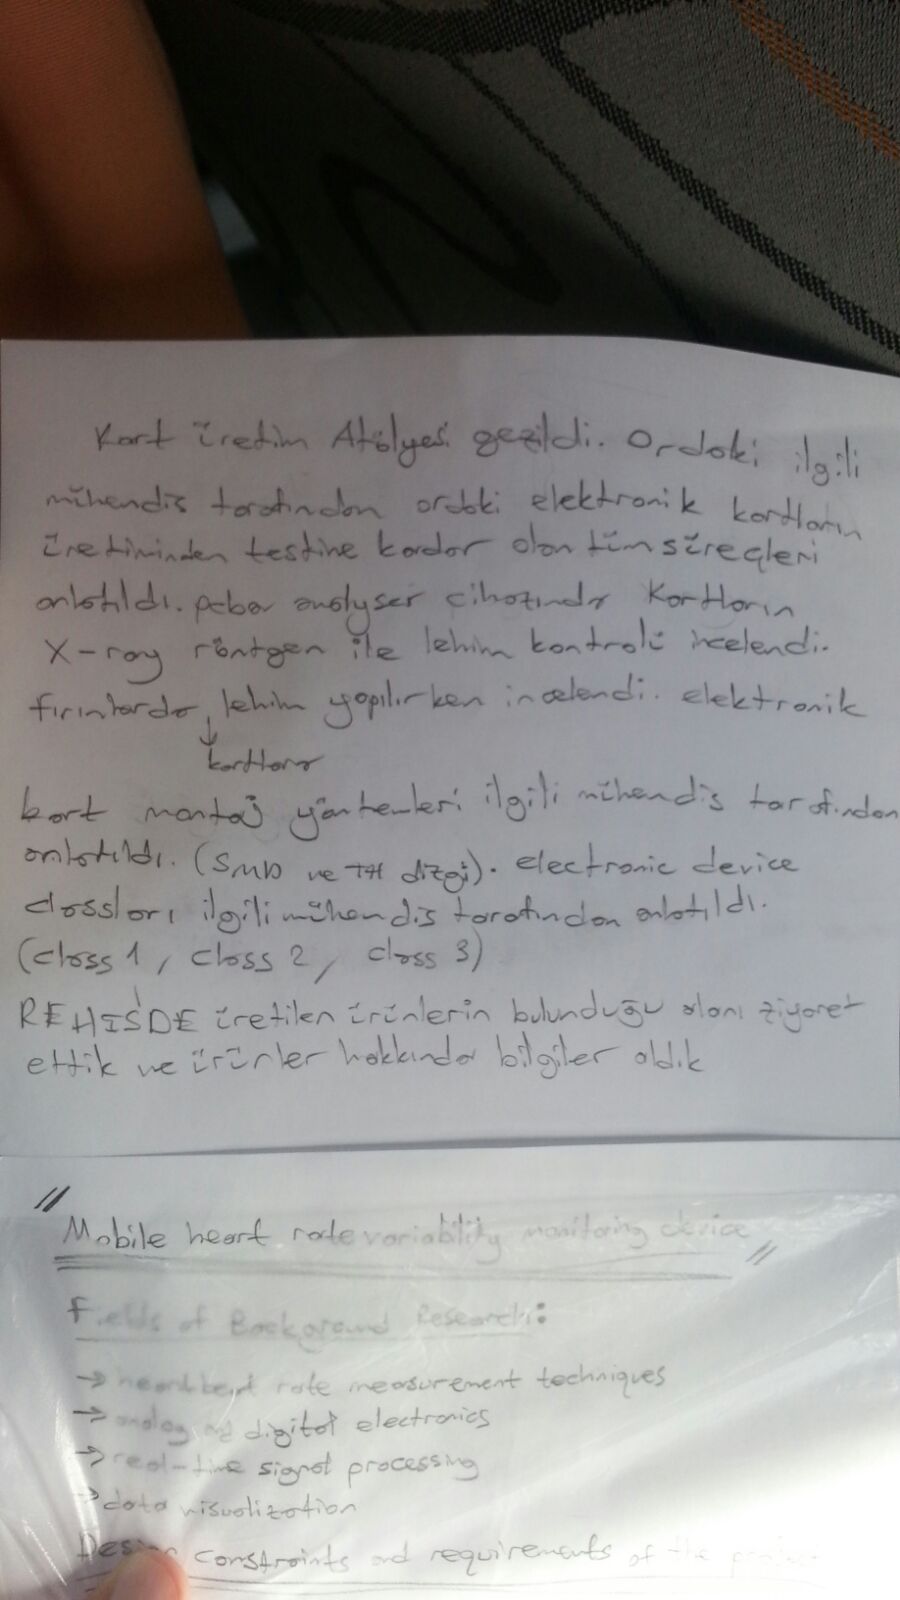 Kart üretim Atölyesi gezildi. Ordaki ilgili
mühendis tarafından ordaki elektronik kartların
üretiminden testine kadar olan tüm süreçleri
anlatıldı. pcba analyser cihazında Kartların
X-ray röntgen ile lehim kontrolü incelendi.
fırınlarda, lehim yapılırken incelendi. elektronik
↓
kartlara
kart montaj yöntemleri ilgili mühendis tarafından
anlatıldı. (SMD ve TH dizgi). electronic device
classları ilgili mühendis tarafından anlatıldı.
(class 1, class 2, class 3)
REHİS'DE üretilen ürünlerin bulunduğu alanı ziyaret
ettik ve ürünler hakkında bilgiler aldık
//
Mobile heart rate variability monitoring device
//
Fields of Background Research:
→ heartbeat rate measurement techniques
→ analog and digital electronics
→ real-time signal processing
→ data visualization
Design constraints and requirements of the project